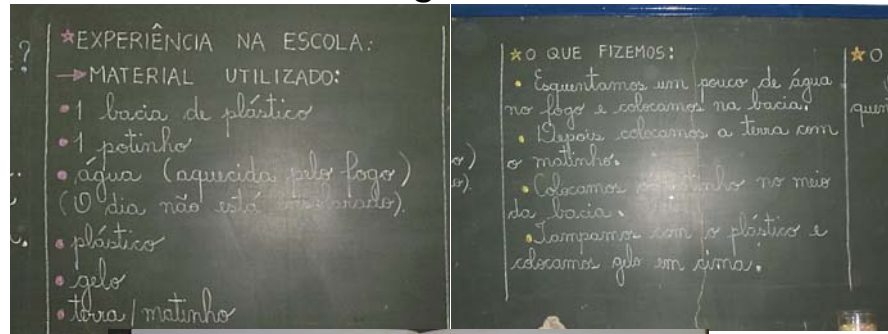 ?
★EXPERIÊNCIA NA ESCOLA:
→MATERIAL UTILIZADO:
• 1 bacia de plástico
• 1 potinho
• água (aquecida pelo fogo)
(O dia não está ensolarado).
• plástico
• gelo
• terra / matinho
★O QUE FIZEMOS:
• Esquentamos um pouco de água
no fogo e colocamos na bacia.
• Depois colocamos a terra com
o matinho.
• Colocamos o potinho no meio
da bacia.
• Tampamos com o plástico e
colocamos gelo em cima.
★O
quen